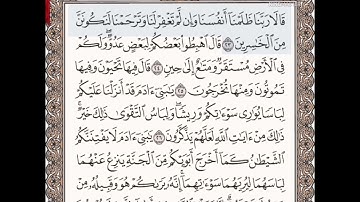 قَالَا رَبَّنَا ظَلَمْنَا أَنفُسَنَا وَإِن لَّمْ تَغْفِرْ لَنَا وَتَرْحَمْنَا لَنَكُونَنَّ
مِنَ الْخَٰسِرِينَ ٢٣ قَالَ اهْبِطُوا بَعْضُكُمْ لِبَعْضٍ عَدُوٌّ وَلَكُمْ
فِي الْأَرْضِ مُسْتَقَرٌّ وَمَتَٰعٌ إِلَىٰ حِينٍ ٢٤ قَالَ فِيهَا تَحْيَوْنَ وَفِيهَا
تَمُوتُونَ وَمِنْهَا تُخْرَجُونَ ٢٥ يَٰبَنِي ءَادَمَ قَدْ أَنزَلْنَا عَلَيْكُمْ
لِبَاسًا يُوَٰرِي سَوْءَٰتِكُمْ وَرِيشًا وَلِبَاسُ التَّقْوَىٰ ذَٰلِكَ خَيْرٌ
ذَٰلِكَ مِنْ ءَايَٰتِ اللَّهِ لَعَلَّهُمْ يَذَّكَّرُونَ ٢٦ يَٰبَنِي ءَادَمَ لَا يَفْتِنَنَّكُمُ
الشَّيْطَٰنُ كَمَا أَخْرَجَ أَبَوَيْكُم مِّنَ الْجَنَّةِ يَنزِعُ عَنْهُمَا
لِبَاسَهُمَا لِيُرِيَهُمَا سَوْءَٰتِهِمَا إِنَّهُ يَرَىٰكُمْ هُوَ وَقَبِيلُهُ مِنْ